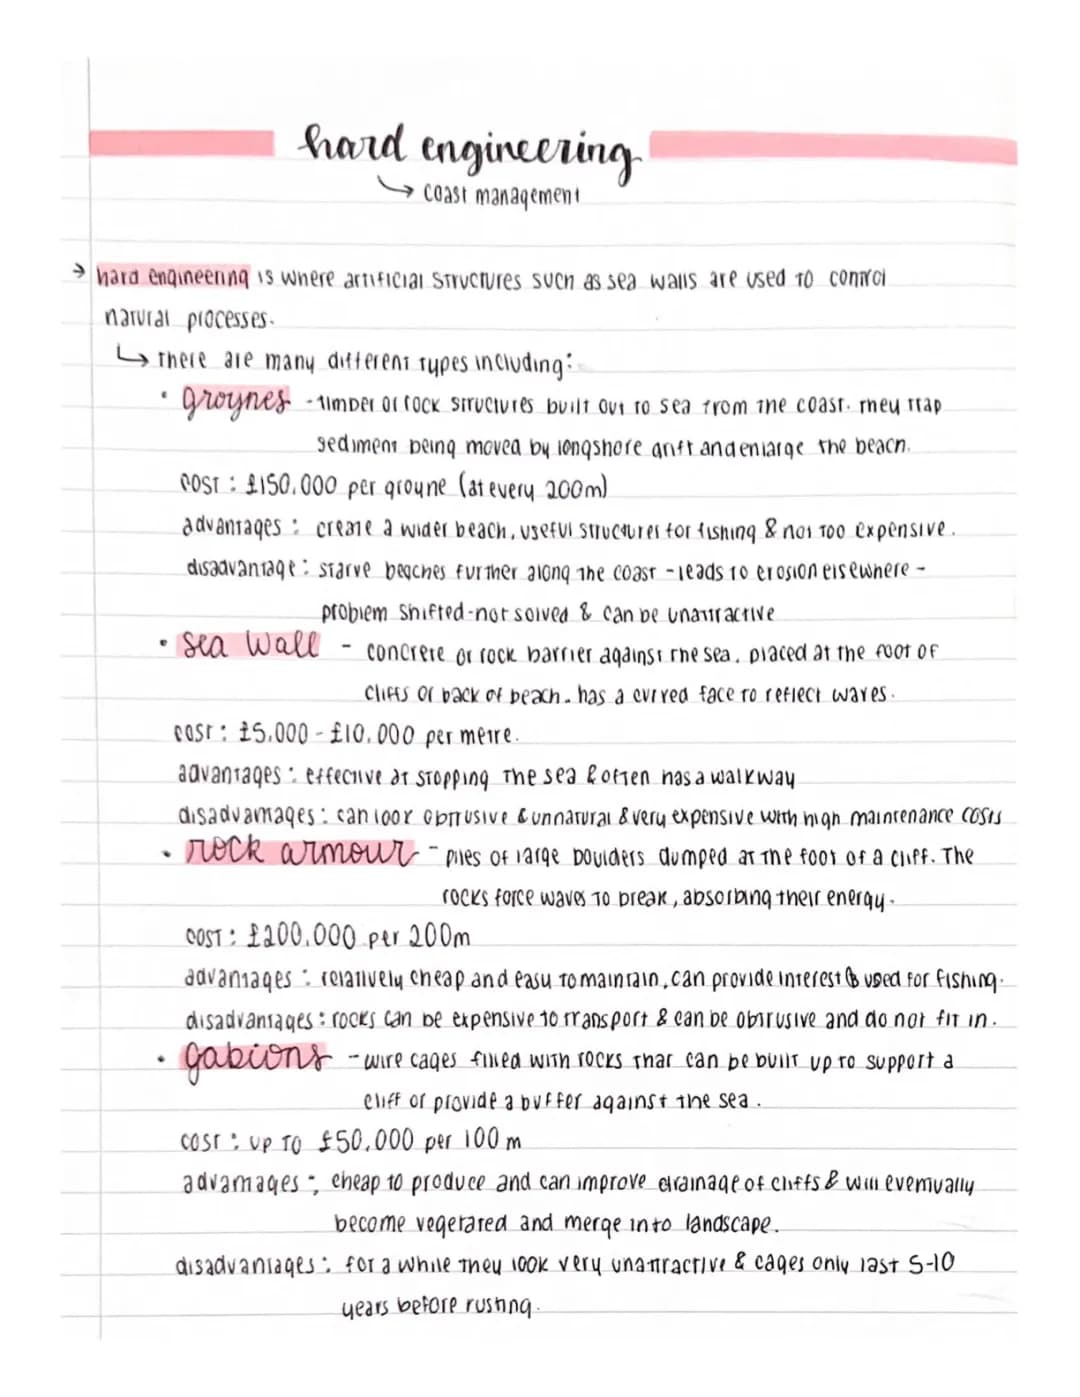 hard engineering
↳ coast management
→ hard engineering is where artificial structures such as sea walls are used to control
natural processes.
↳ there are many different types including:
• groynes - timber or rock structures built out to sea from the coast. they trap
sediment being moved by longshore drift and enlarge the beach.
cost : £150,000 per groyne (at every 200m)
advantages : create a wider beach, useful structures for fishing & not too expensive.
disadvantage : starve beaches further along the coast - leads to erosion elsewhere -
problem shifted - not solved & can be unattractive
• sea wall - concrete or rock barrier against the sea, placed at the foot of
cliffs or back of beach. has a curved face to reflect waves.
cost : £5,000 - £10,000 per metre.
advantages : effective at stopping the sea & often has a walkway
disadvantages : can look obtrusive & unnatural & very expensive with high maintenance costs
• rock armour - piles of large boulders dumped at the foot of a cliff. The
rocks force waves to break, absorbing their energy.
cost : £200,000 per 200m
advantages : relatively cheap and easy to maintain, can provide interest & used for fishing.
disadvantages : rocks can be expensive to transport & can be obtrusive and do not fit in.
• gabions - wire cages filled with rocks that can be built up to support a
cliff or provide a buffer against the sea.
cost : up to £50,000 per 100 m
advantages : cheap to produce and can improve drainage of cliffs & will eventually
become vegetated and merge into landscape.
disadvantages : for a while they look very unattractive & cages only last 5-10
years before rusting.